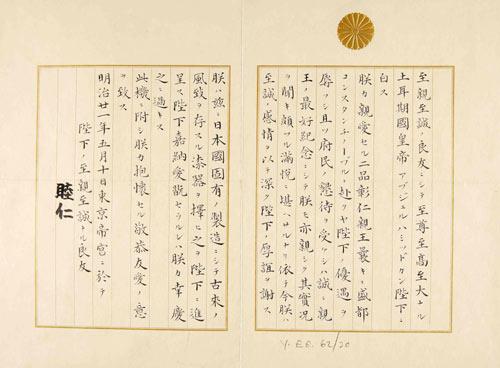 至親至誠ノ良友ニシテ至尊至高至大ナル
土耳期國皇帝アブジュルハミッドカン陛下ニ
白ス
朕カ親愛セル二品彰仁親王曩キニ盛都
コンスタンチノープルニ赴クヤ陛下ノ優遇ヲ
辱シ且ツ府民ノ懇待ヲ受ケシハ誠ニ親
王ノ最好紀念ニシテ朕モ亦親シク其實況
ヲ聞キ頗フル滿悦ニ堪ヘサルナリ依テ今朕ハ
至誠ノ感情ヲ以テ深ク陛下ノ厚誼ヲ謝ス
朕ハ玆ニ日本國固有ノ製造ニシテ古来ノ
風致ヲ存スル漆器ヲ擇ヒ之ヲ陛下ニ進
呈ス陛下嘉納愛翫セラルレハ朕カ幸慶
之ニ過キス
此機ニ附シ朕カ抱懐セル敬恭友愛ノ意
ヲ致ス
明治廿一年五月十日東京帝宮ニ於テ
陛下ノ至親至誠ナル良友
睦仁
Y. EE. 62/20